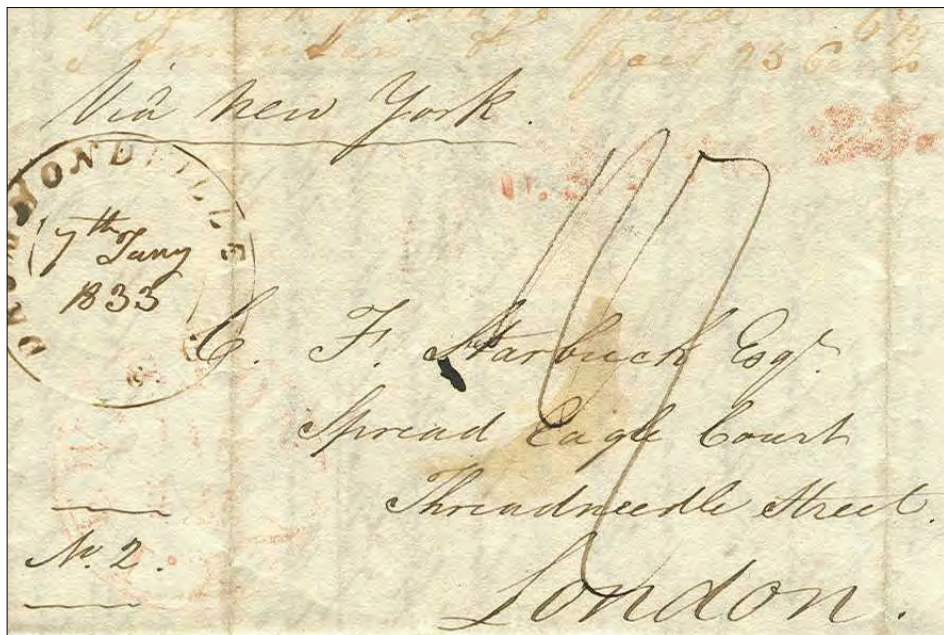 postage paid
paid 25 Cents
Via New York.
25.
DRUMMONDVILLE
7th Jany
1833
C. F. Starbuck Esqr.
Spread Eagle Court
Threadneedle Street.
No. 2.
London.